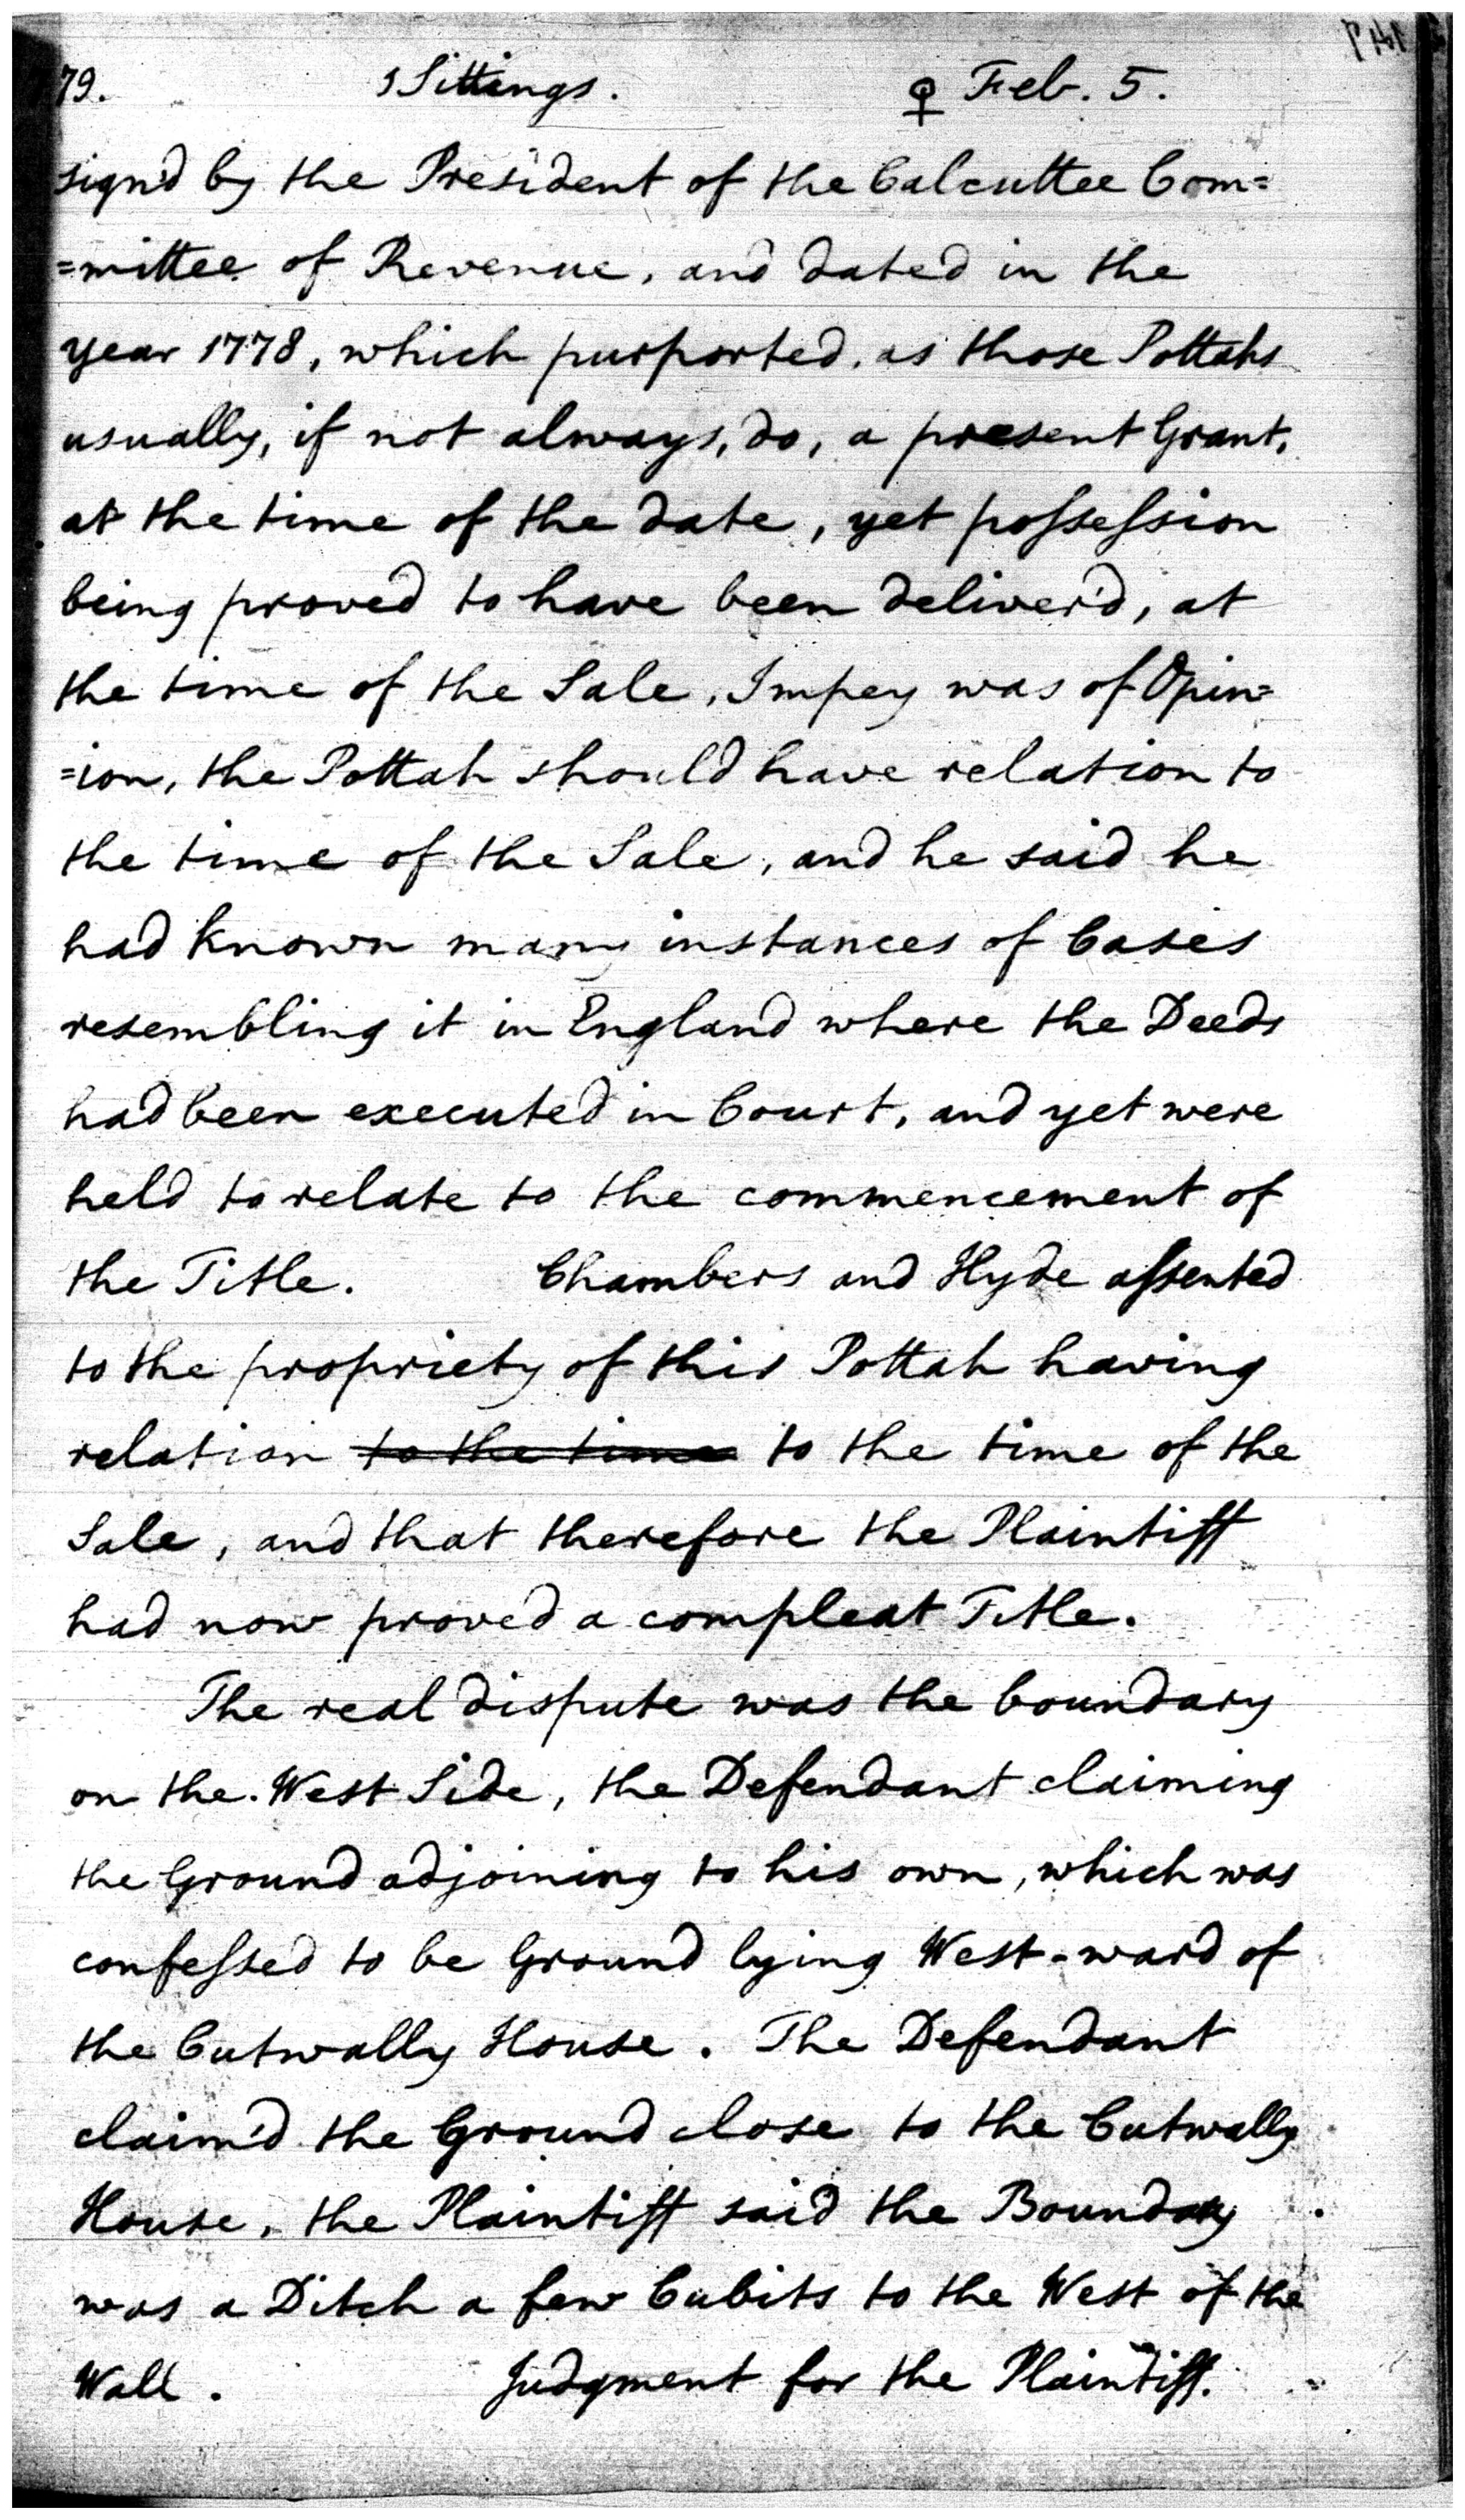 79. Sittings. ♀ Feb. 5.
sign'd by the President of the Calcuttee Com=
=mittee of Revenue, and dated in the
year 1778, which purported, as those Pottahs
usually, if not always, do, a present Grant,
at the time of the date, yet poſseſsion
being proved to have been deliver'd, at
the time of the Sale, Impey was of Opin=
=ion, the Pottah should have relation to
the time of the Sale, and he said he
had known many instances of Cases
resembling it in England where the Deeds
had been executed in Court, and yet were
held to relate to the commencement of
the Title. Chambers and Hyde aſsented
to the propriety of this Pottah having
relation to the time to the time of the
Sale, and that therefore the Plaintiff
had now proved a compleat Title.
The real dispute was the boundary
on the West Side, the Defendant claiming
the Ground adjoining to his own, which was
confeſsed to be Ground lying West-ward of
the Cutwally House. The Defendant
claim'd the Ground close to the Cutwally
House, the Plaintiff said the Boundary
was a Ditch a few Cubits to the West of the
Wall. Judgment for the Plaintiff.